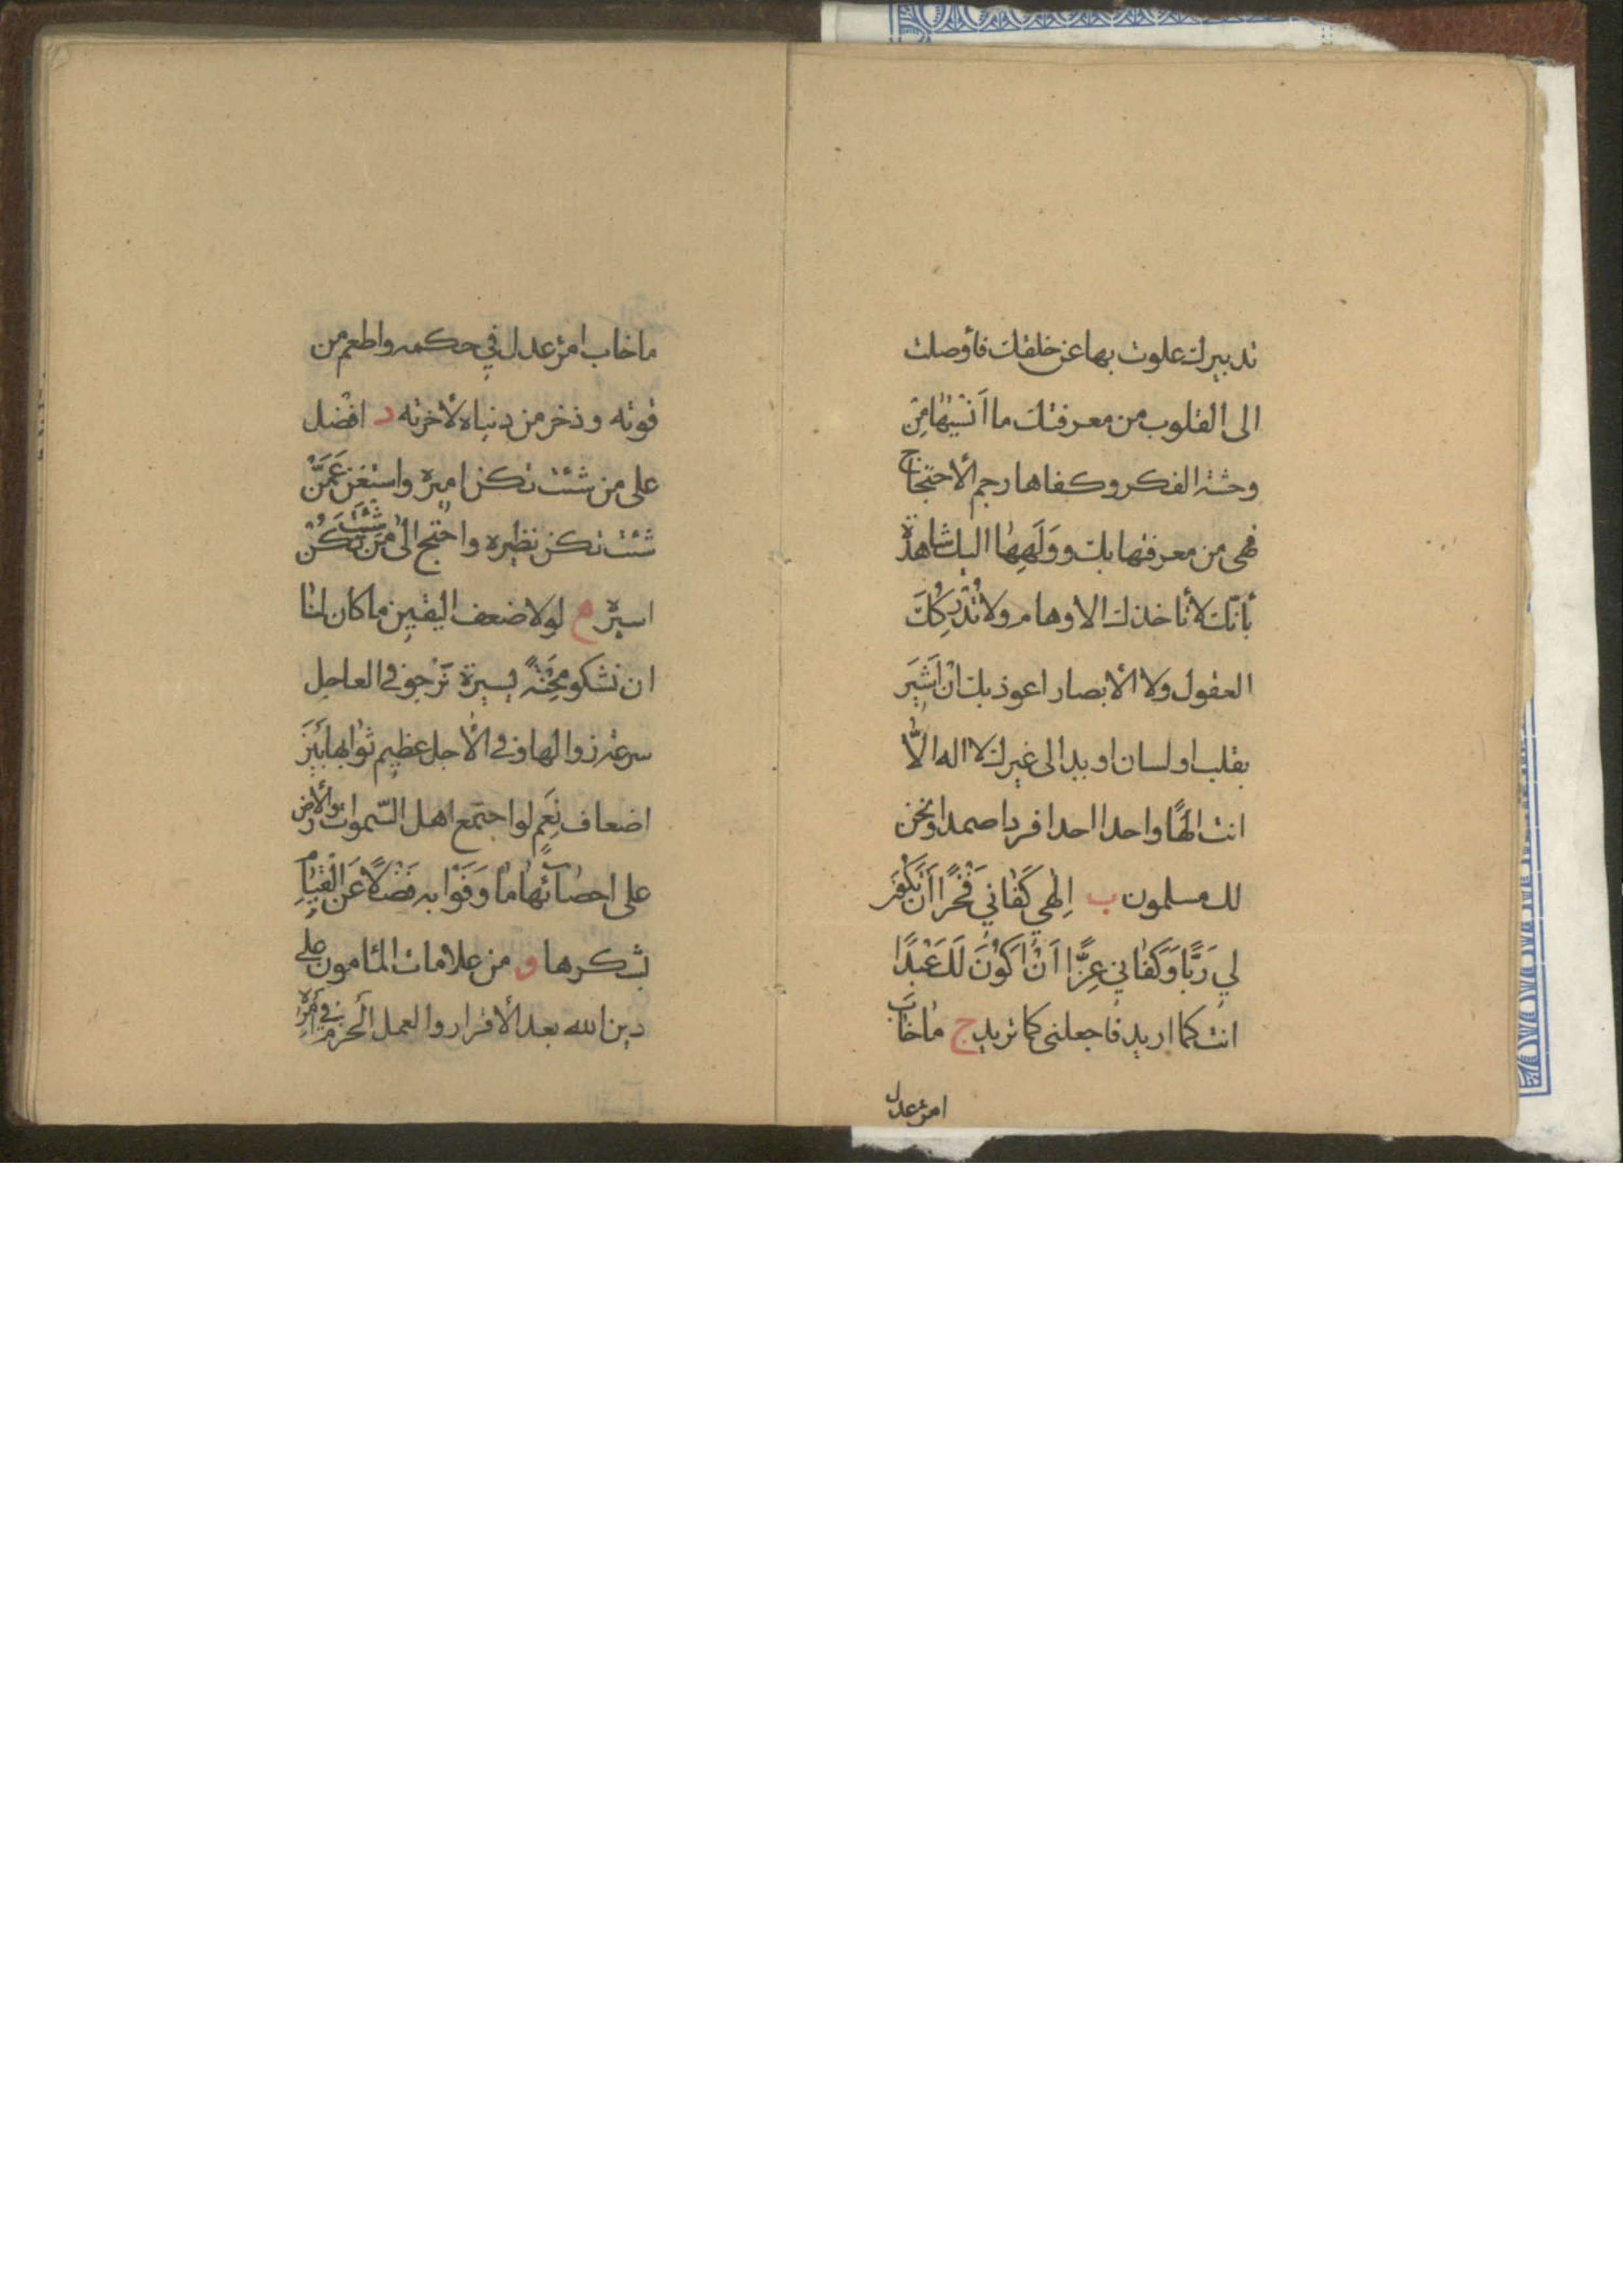 تدبيرك علوت بها عن خلقك فأوصلت
الى القلوب من معرفتك ما اَنْسَيْهَا مِنْ
وحشة الفكر وكفاها رجم الأحتجاج
فهى من معرفتها بك ووَلَهِهٰا اليك شاهدة
بأنّك لا تأخذك الاوهام ولا تُدْرِكُكَ
العقول ولا الأبصار اعوذ بك ان اُشيرَ
بقلب او لسان او يد الى غيرك لا اله الّا
انت الهًا واحدا احدا فردا صمدا ونحن
لك مسلمون ب اِلٰهي كَفٰاني فَخْرًا اَنْ تَكُونَ
لي رَبًّا وَكَفٰاني عِزًّا اَنْ اَكُونَ لَكَ عَبْدًا
انت كما اريد فاجعلنى كما تريد ج مٰاخٰابَ
امرؤ عدل
ماخاب امرؤ عدل في حكمه واطعم من
قوته وذخر من دنياه لأخرته د افْضل
على من شئت تكن اميره واستغن عَمَّنْ
شئت تكن نظيره واحْتج الٰى مَن شئتَ تكُنْ
اسيره ه لولا ضعف اليقين ما كان لنٰا
ان نشكو مِحْنَةً يسيرة نرجو فى العاجل
سرعة زوالها وفى الأجل عظيم ثوابها بَيْنَ
اضعاف نِعَمٍ لو اجتمع اهل السّموات والأرض
على احصآئهٰا مٰا وَفَوْا به فَضْلًا عَنِ الْقِيٰامِ
بشكرها و من علامات المأمون على
دين الله بعد الأقرار والعمل الْحزم في اَمْرِهِ